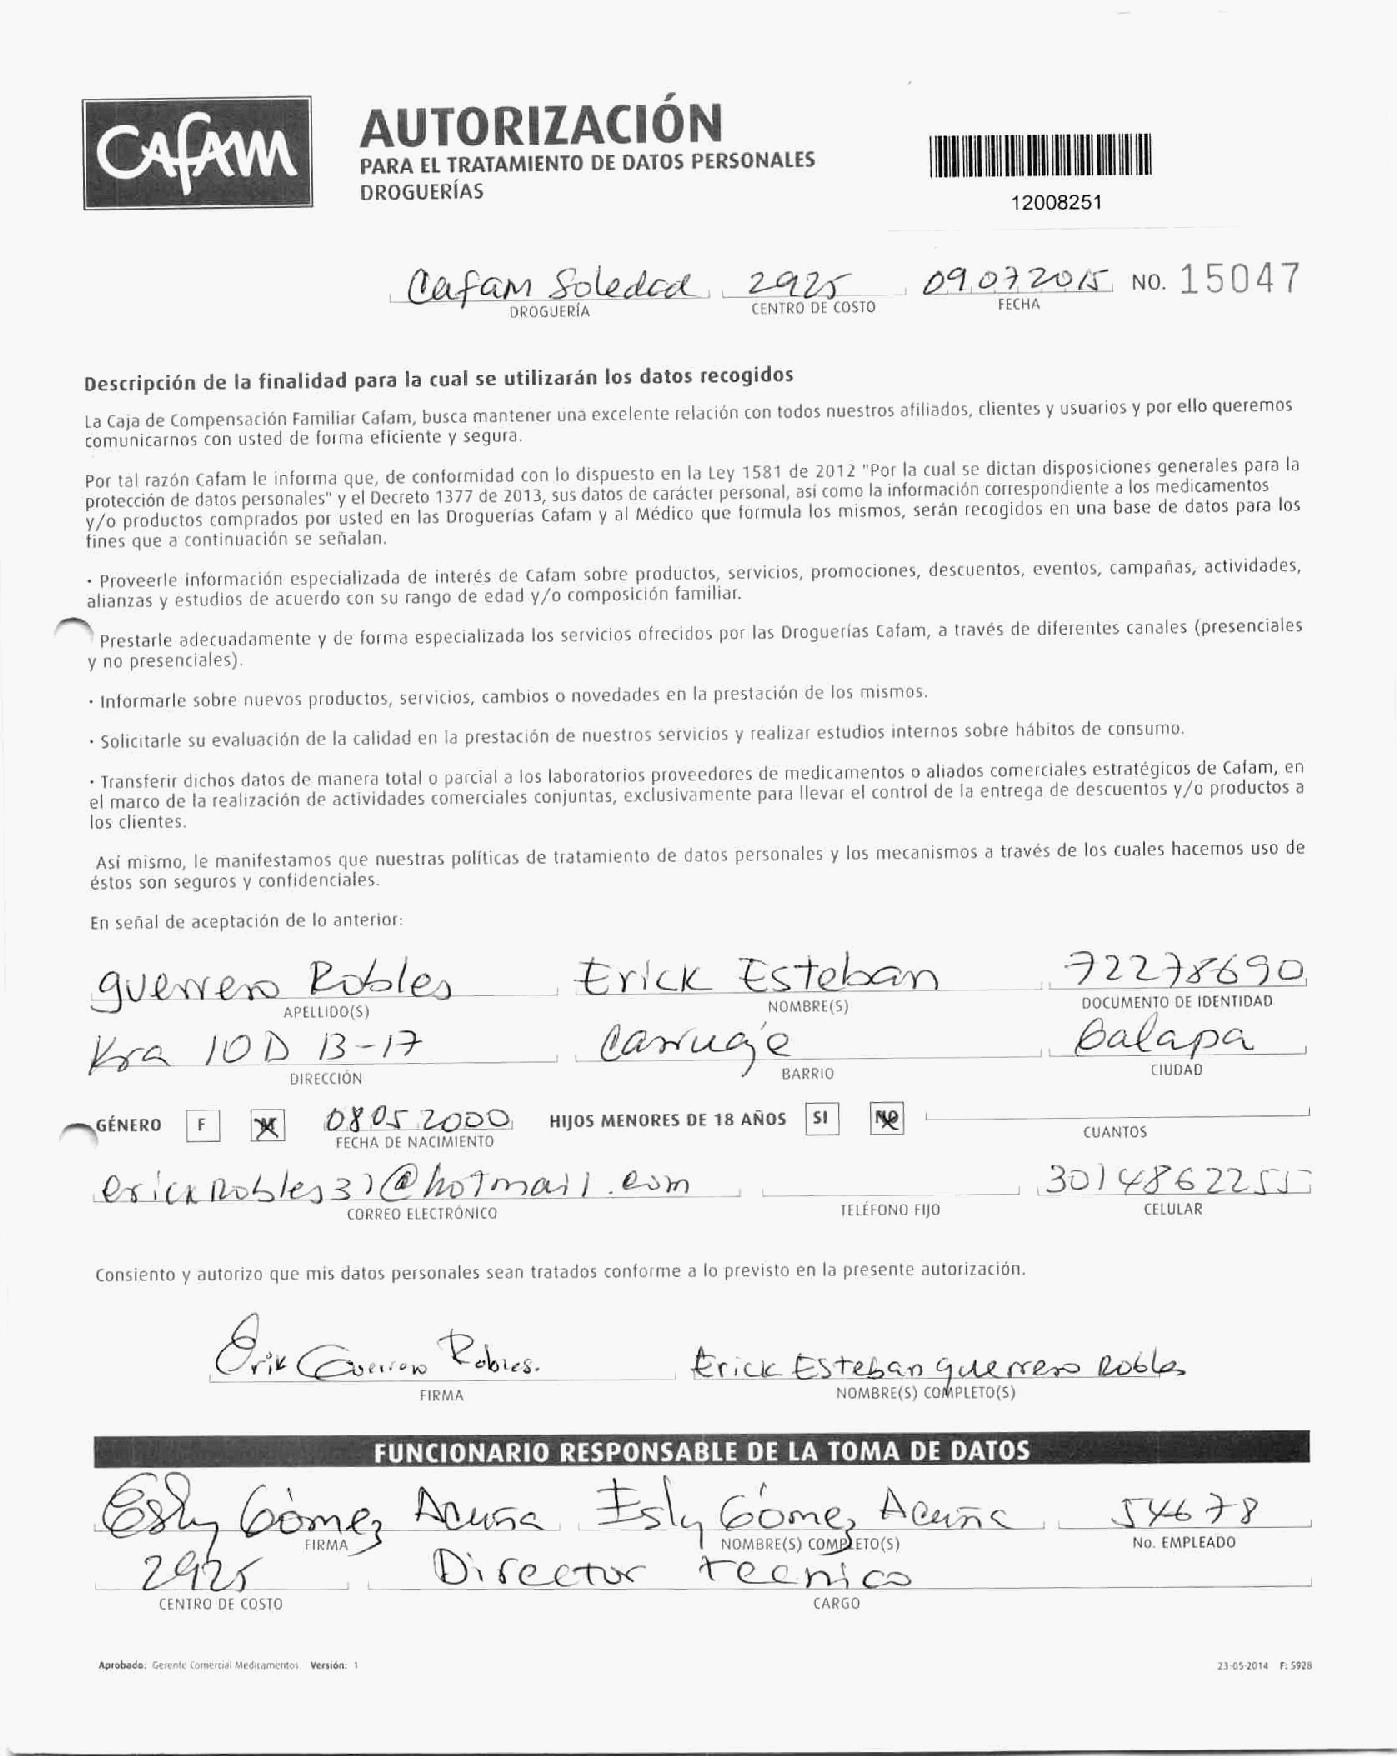 CAFAM
AUTORIZACIÓN
PARA EL TRATAMIENTO DE DATOS PERSONALES
DROGUERÍAS
12008251
Cafam Soledad 2925 09 07 2015 NO. 15047
DROGUERÍA CENTRO DE COSTO FECHA
Descripción de la finalidad para la cual se utilizarán los datos recogidos
La Caja de Compensación Familiar Cafam, busca mantener una excelente relación con todos nuestros afiliados, clientes y usuarios y por ello queremos
comunicarnos con usted de forma eficiente y segura.
Por tal razón Cafam le informa que, de conformidad con lo dispuesto en la Ley 1581 de 2012 "Por la cual se dictan disposiciones generales para la
protección de datos personales" y el Decreto 1377 de 2013, sus datos de carácter personal, así como la información correspondiente a los medicamentos
y/o productos comprados por usted en las Droguerías Cafam y al Médico que formula los mismos, serán recogidos en una base de datos para los
fines que a continuación se señalan.
· Proveerle información especializada de interés de Cafam sobre productos, servicios, promociones, descuentos, eventos, campañas, actividades,
alianzas y estudios de acuerdo con su rango de edad y/o composición familiar.
Prestarle adecuadamente y de forma especializada los servicios ofrecidos por las Droguerías Cafam, a través de diferentes canales (presenciales
y no presenciales).
· Informarle sobre nuevos productos, servicios, cambios o novedades en la prestación de los mismos.
· Solicitarle su evaluación de la calidad en la prestación de nuestros servicios y realizar estudios internos sobre hábitos de consumo.
· Transferir dichos datos de manera total o parcial a los laboratorios proveedores de medicamentos o aliados comerciales estratégicos de Cafam, en
el marco de la realización de actividades comerciales conjuntas, exclusivamente para llevar el control de la entrega de descuentos y/o productos a
los clientes.
Así mismo, le manifestamos que nuestras políticas de tratamiento de datos personales y los mecanismos a través de los cuales hacemos uso de
éstos son seguros y confidenciales.
En señal de aceptación de lo anterior:
guerrero Robles Erick Esteban 72278690
APELLIDO(S) NOMBRE(S) DOCUMENTO DE IDENTIDAD
Kra 10D 13-17 Carruaje Galapa
DIRECCIÓN BARRIO CIUDAD
GÉNERO F M 08 05 2000 HIJOS MENORES DE 18 AÑOS SI NO
FECHA DE NACIMIENTO CUANTOS
erickRobles31@hotmail.com 3014862255
CORREO ELECTRÓNICO TELÉFONO FIJO CELULAR
Consiento y autorizo que mis datos personales sean tratados conforme a lo previsto en la presente autorización.
Erik Guerrero Robles. Erick Esteban guerrero Robles
FIRMA NOMBRE(S) COMPLETO(S)
FUNCIONARIO RESPONSABLE DE LA TOMA DE DATOS
Esly Gómez Acuña Esly Gómez Acuña 54678
FIRMA NOMBRE(S) COMPLETO(S) No. EMPLEADO
2925 Director tecnico
CENTRO DE COSTO CARGO
Aprobado: Gerente Comercial Medicamentos Versión: 1 23-05-2014 F: 5928